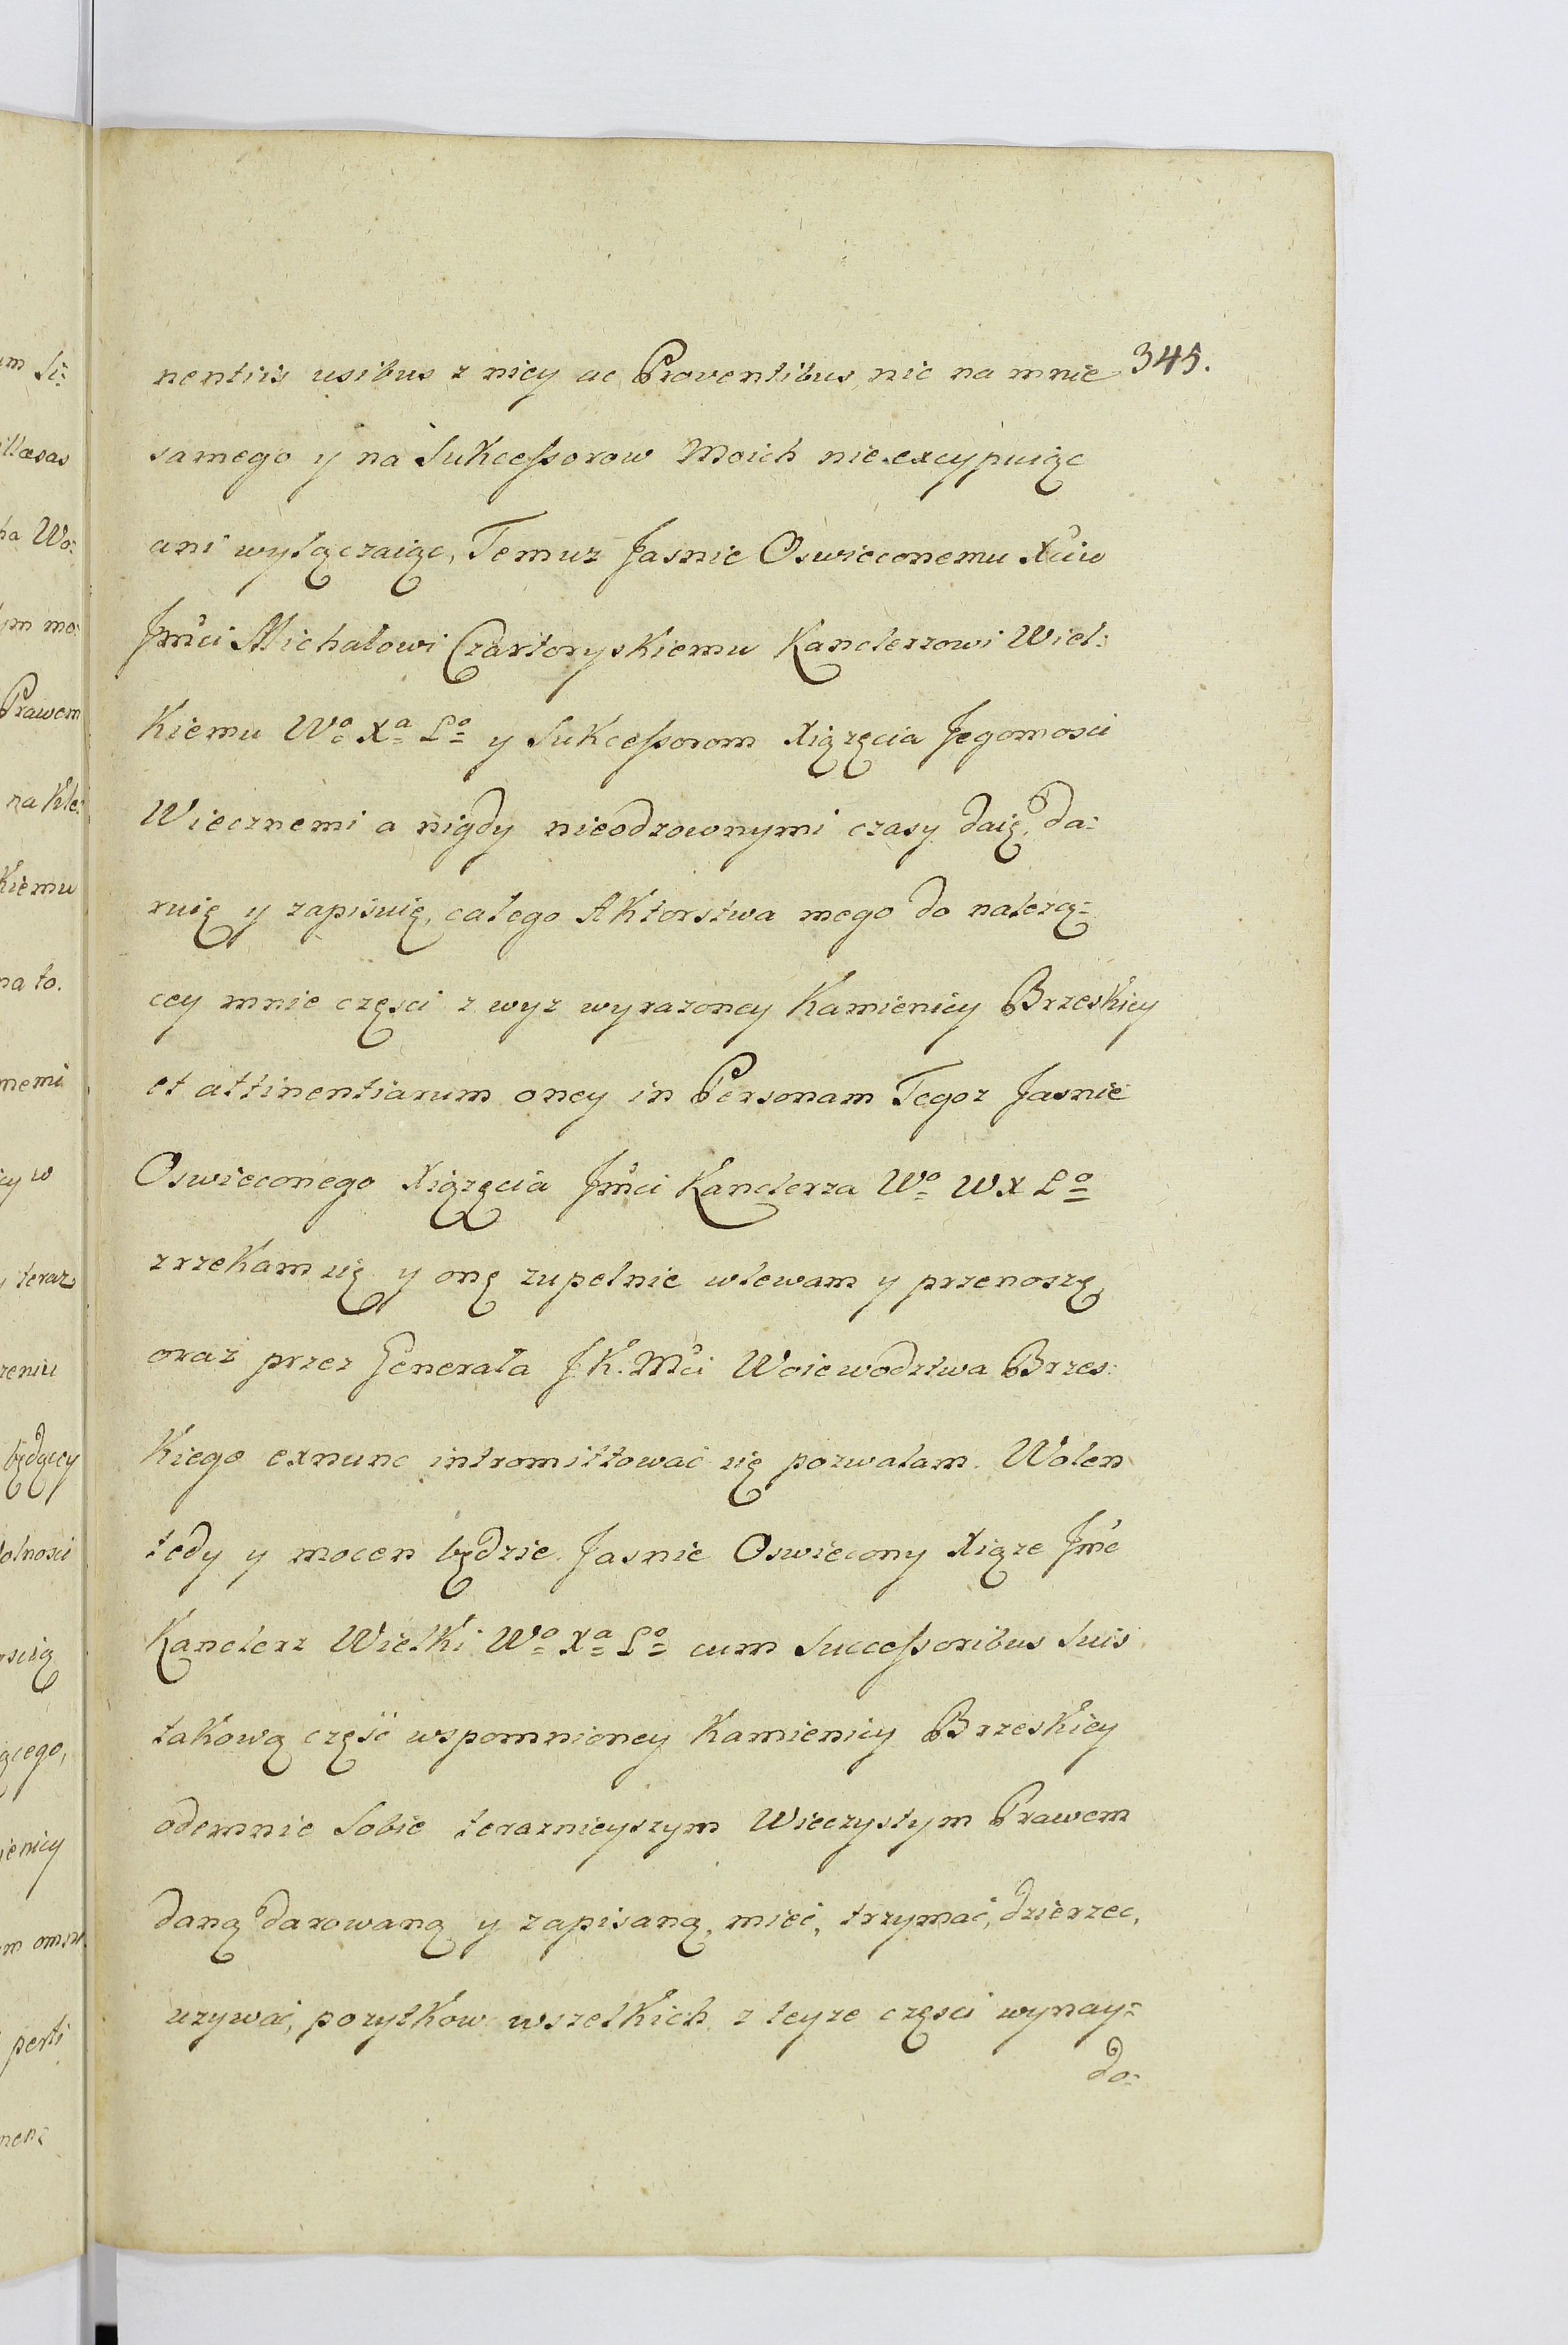 345.
nentiis usibus z niey ac Proventibus, nic na mnie
samego y na Sukcessorow Moich nie excypuiąc
ani wyłączaiąc, Temuz Jasnie Oswieconemu Xciu
Jmci Michałowi Czartoryskiemu Kanclerzowi Wiel:
kiemu Wo Xa Lo y Sukcessorom Xiązęcia Jegomosci
Wiecznemi a nigdy nieodzownymi czasy daię, da:
ruię y zapisuię, całego Aktorstwa mego do nalezą=
cey mnie części z wyz wyrazoney Kamienicy Brzeskiey
et attinentiarum oney in Personam Tegoz Jasnie
Oswieconego Xiązęcia Jmci Kanclerza Wo W X Lo
zrzekam się y onę zupełnie wlewam y przenoszę,
oraz przez Generała J K. Mci Woiewodztwa Brzes:
kiego exnunc intromittować się pozwalam. Wolen
tedy y mocen będzie Jasnie Oswiecony Xiąze Jmc
Kanclerz Wielki Wo Xa Lo cum Successoribus Suis
takową część wspomnioney Kamienicy Brzeskiey
odemnie Sobie teraznieyszym Wieczystym Prawem
daną darowaną y zapisaną, mieć, trzymać, dzierzec,
uzywać, pozytkow wszelkich z teyze części wynay=
do:
um Si:
illæsas
ha Wo:
ym mo:
Prawem
na Kle:
kiemu
na to.
nemi
cy w
teraz
zeniu
będącey
olnosci
ącego,
ienicy
perti
nen: